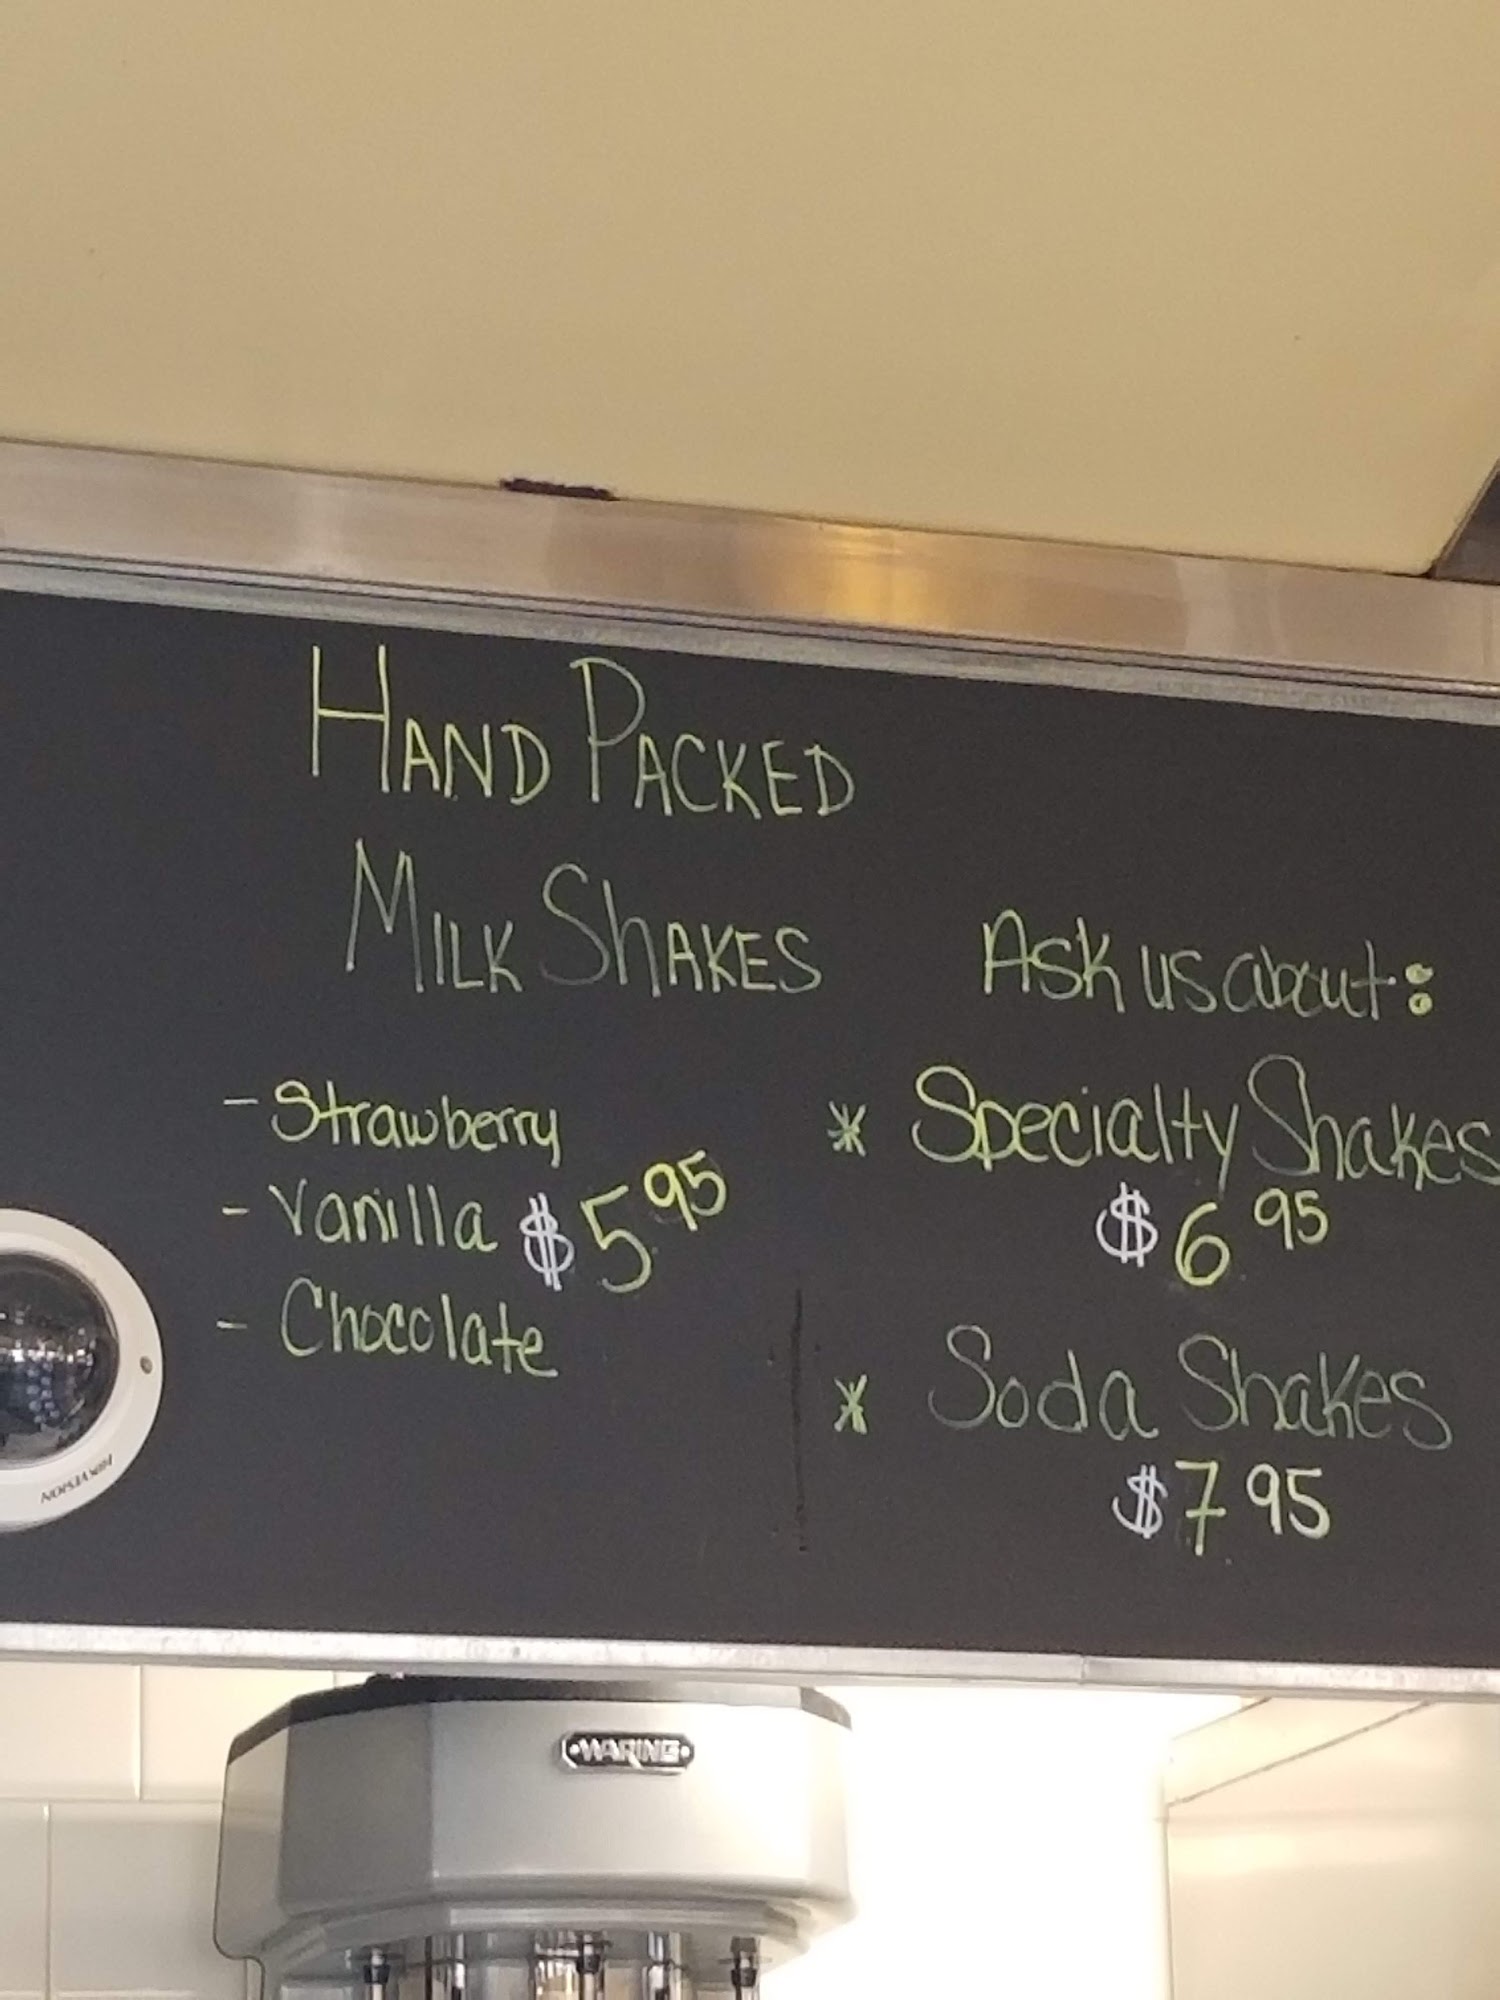 HAND PACKED
MILK ShAKES
- Strawberry
- Vanilla $5 95
- Chocolate
Ask us about:
* Specialty Shakes
$6 95
* Soda Shakes
$7 95
HIKVISION
WARING